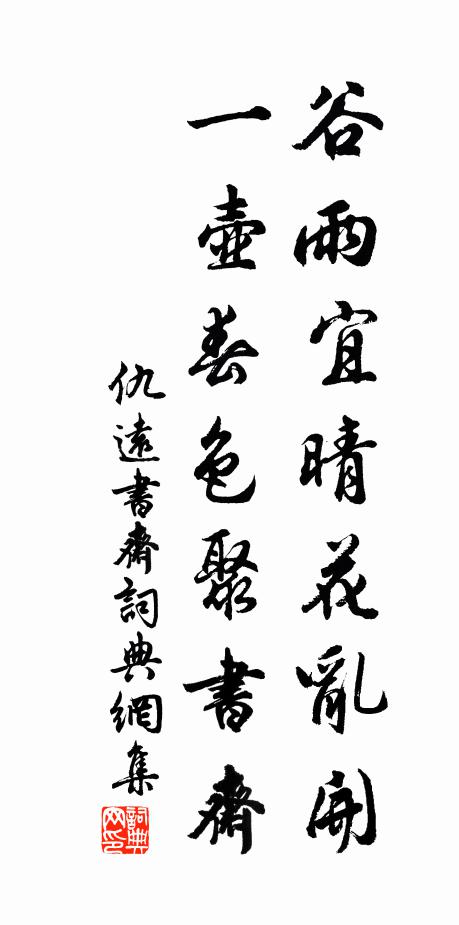 谷雨宜晴花亂開
一壺春色聚書齋
仇遠書齋詞典網集
詞典網印